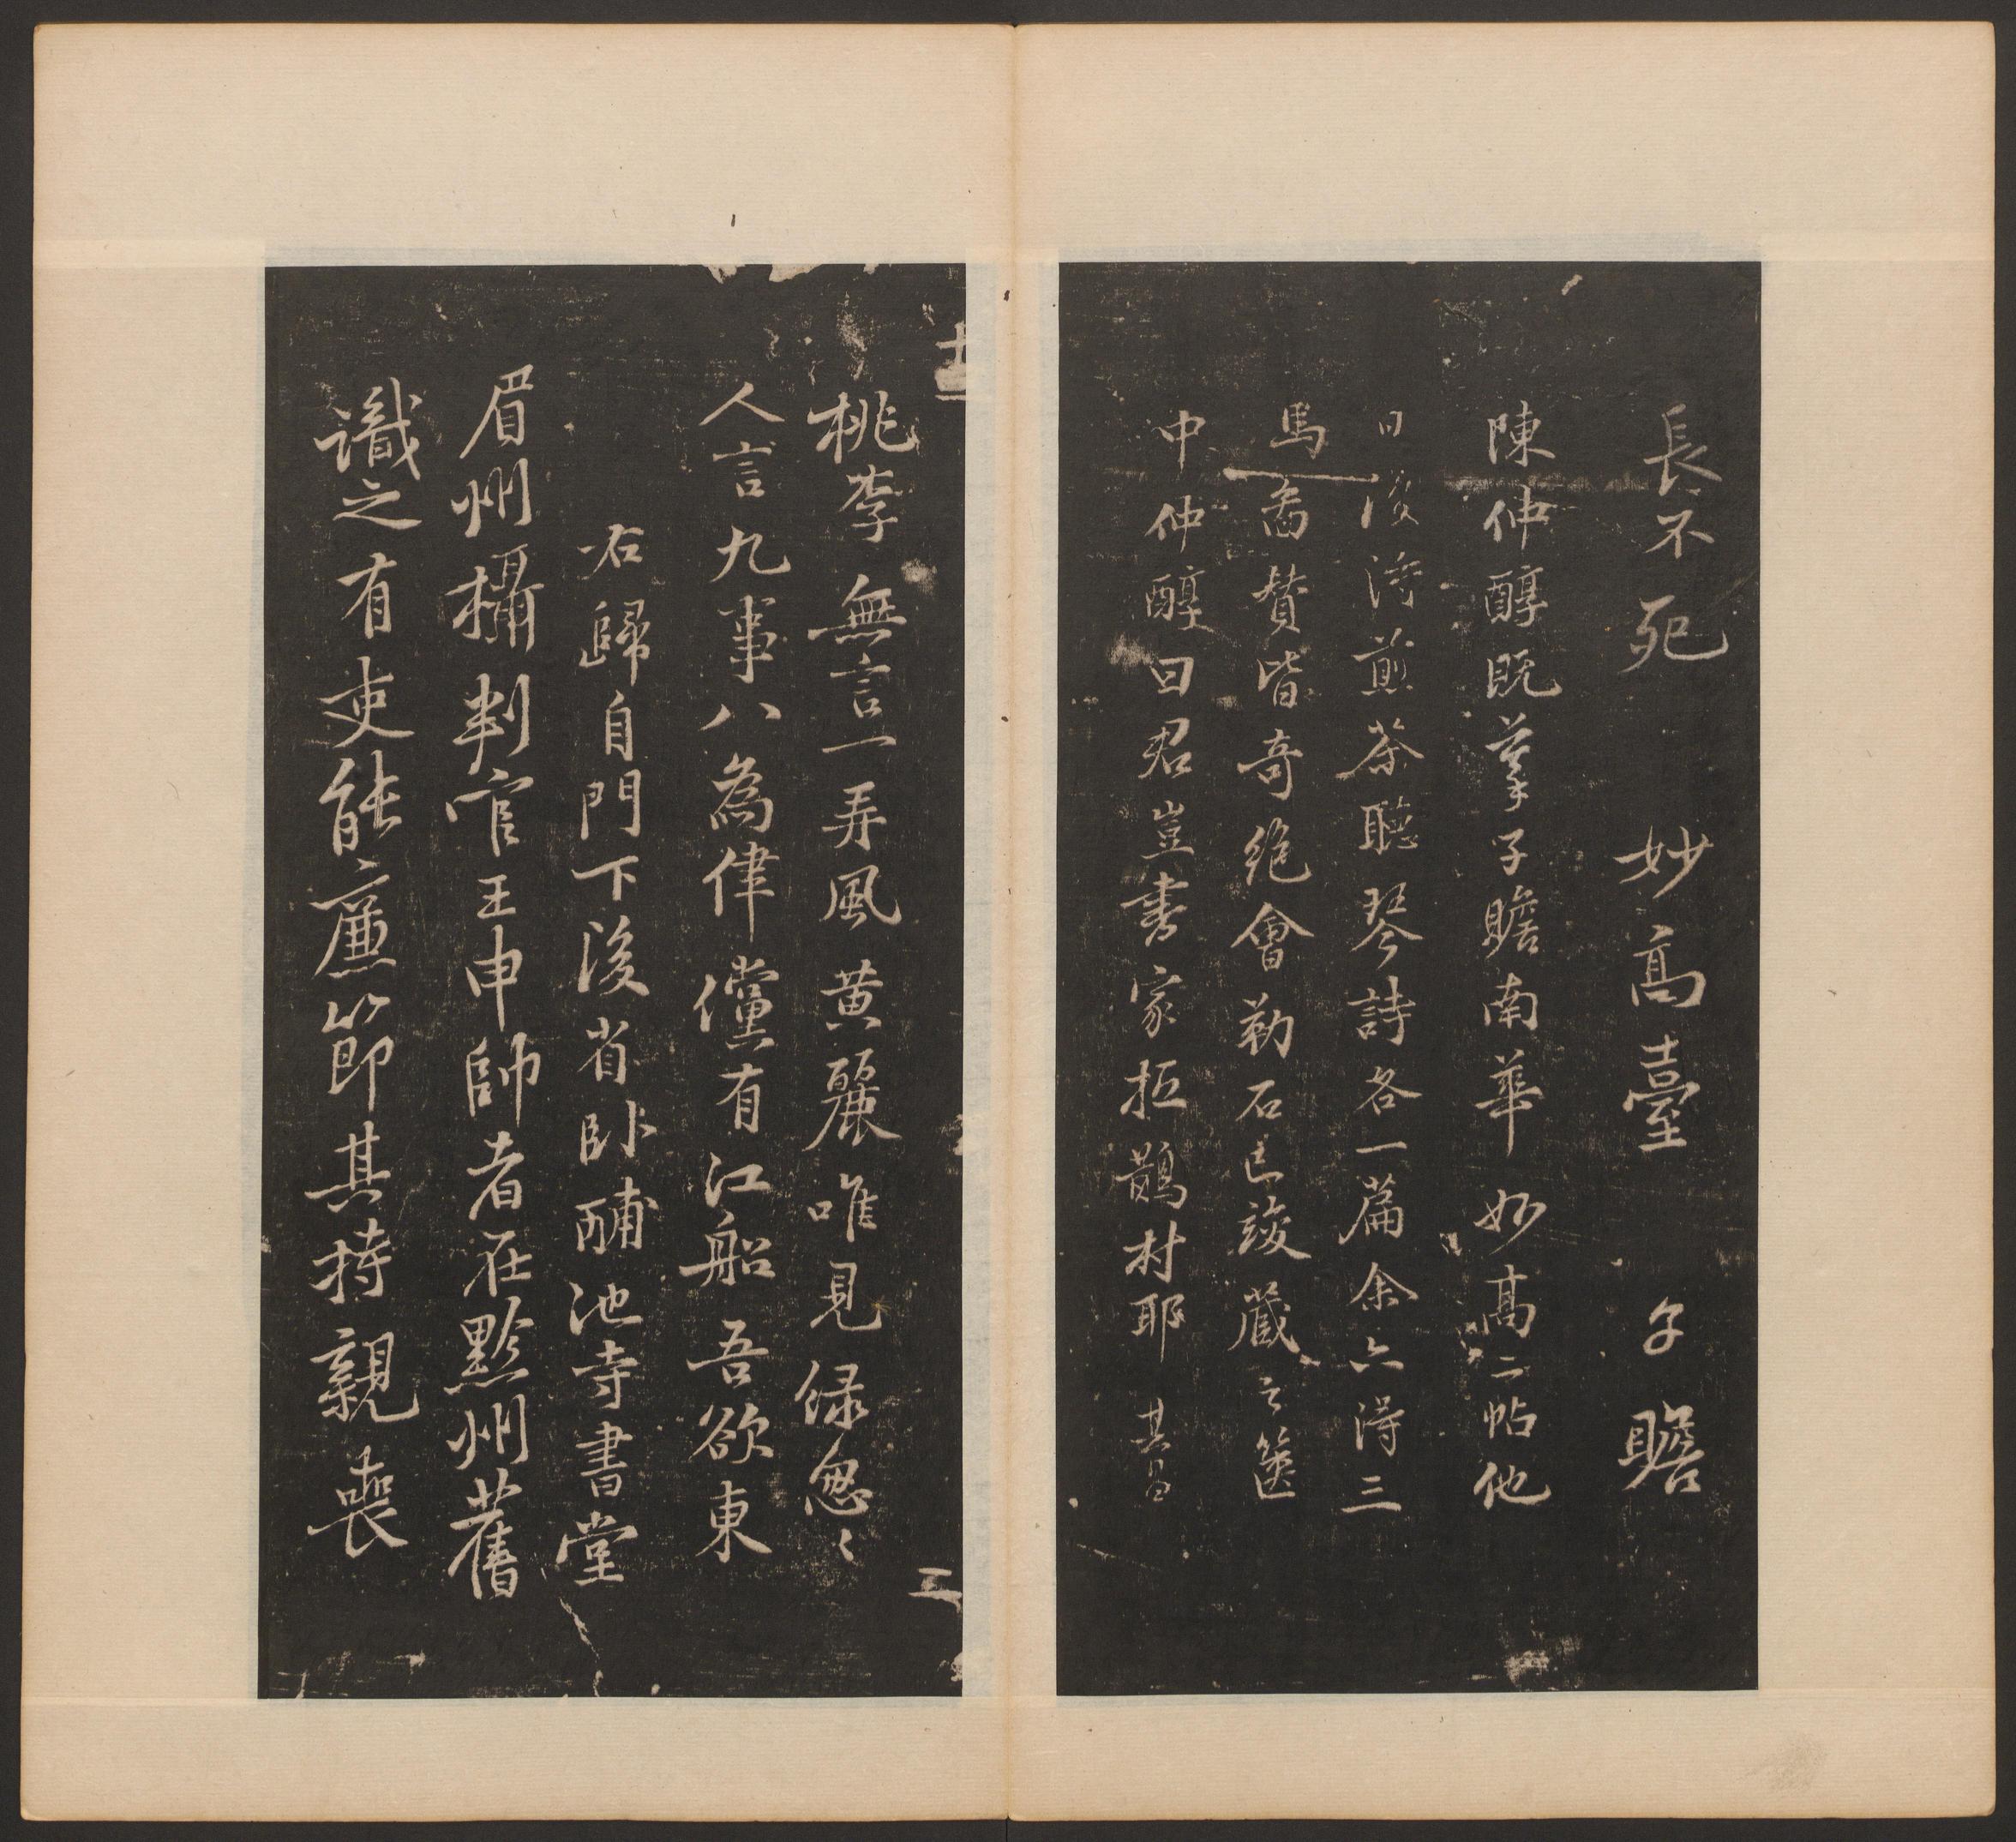 長不死 妙高臺 子瞻
陳仲醇既摹子瞻南華妙高二帖他
日後得煎茶聽琴詩各一篇余六得三
馬啇贊皆奇絶會勒石已竣藏之篋
中仲醇曰君豈書家抵鵲村耶 其昌
桃李無言一再風黄麗唯見緑怱〻
人言九事八為律儻有江船吾欲東
右歸自門下後省卧酺池寺書堂
眉州攝判官王申帥者在黔州舊
識之有吏能廉節其持親喪